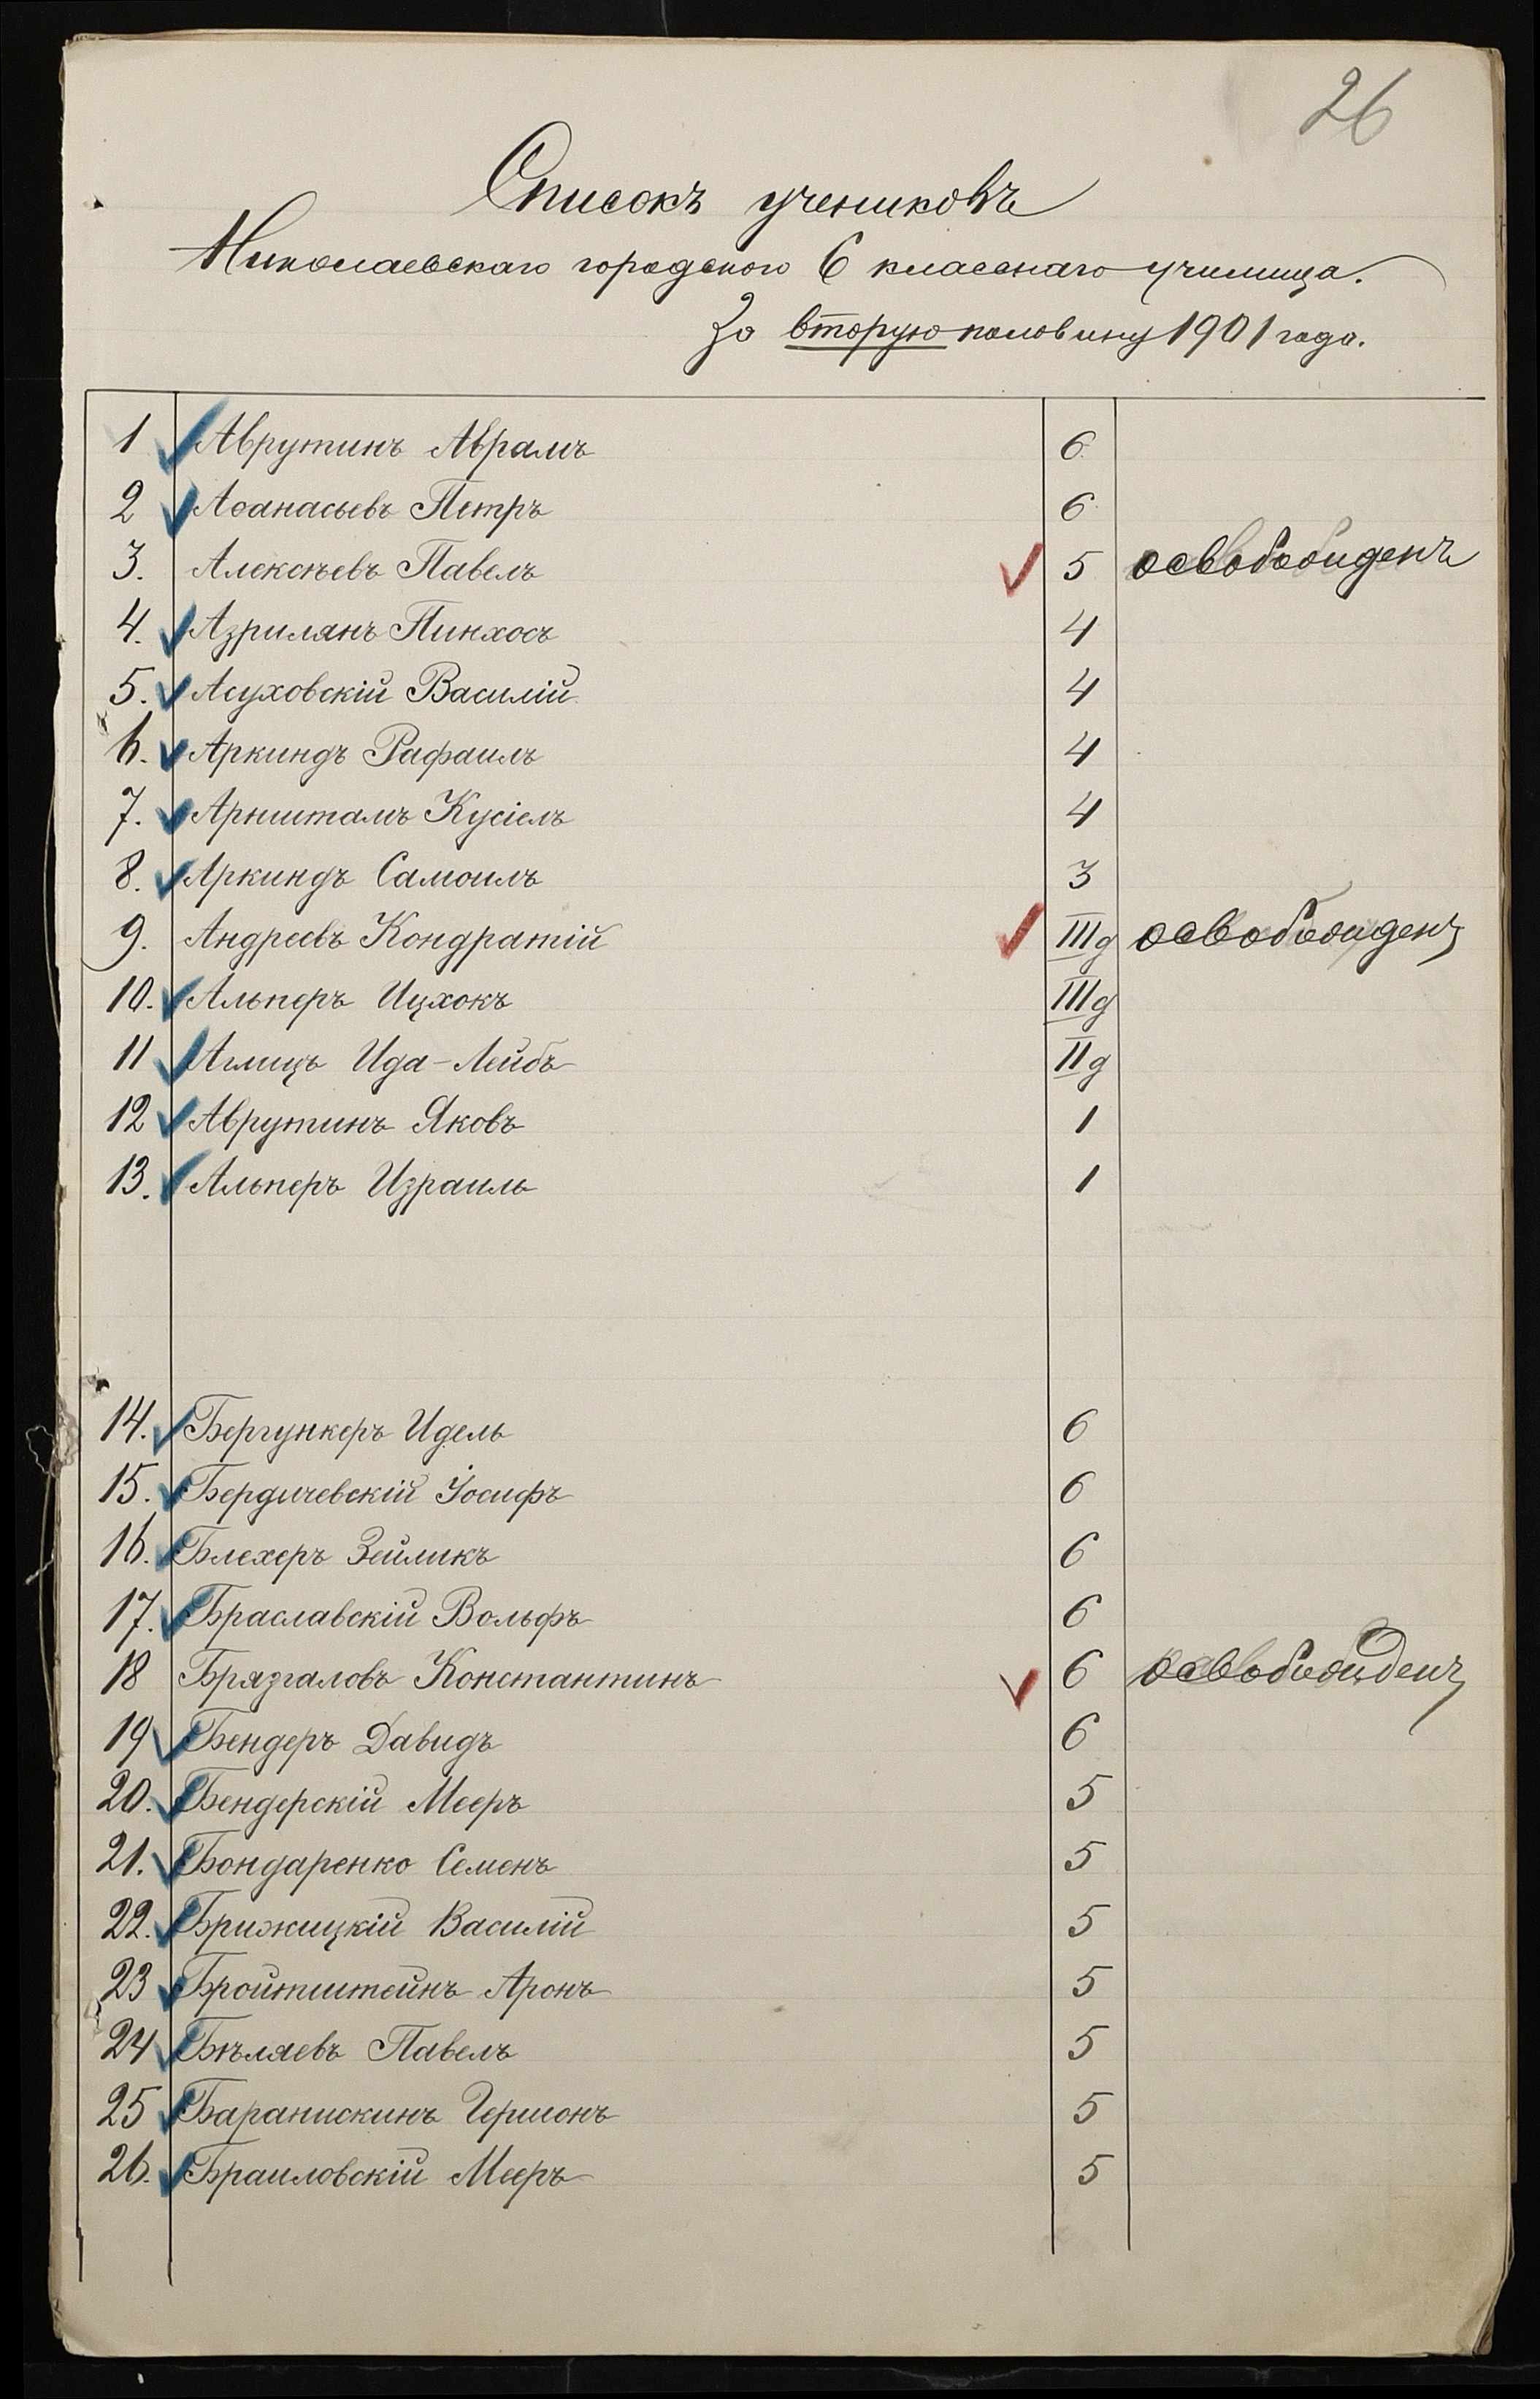 26
Списокъ учениковъ
Николаевскаго городского 6 класснаго училища.
За вторую половину 1901 года.
1 Аврутинъ Аврамъ 6
2 Аѳанасьевъ Петръ 6
3. Алексѣевъ Павелъ 5 освобожденъ
4. Азрилянъ Пинхосъ 4
5. Асуховскій Василій 4
6. Аркиндъ Рафаилъ 4
7. Арнштамъ Кусіелъ 4
8. Аркиндъ Самоилъ 3
9. Андреевъ Кондратій IIIд освобожденъ
10. Альперъ Ицхокъ IIIд
11 Ида-Лейбъ IIд
12 Аврутинъ Яковъ 1
13. Альперъ Израиль 1
14. Бергункеръ Идель 6
15. Бердичевскій Іосифъ 6
16. Блехеръ Зейликъ 6
17. Браславскій Вольфъ 6
18 Брязгаловъ Константинъ 6 освобожденъ
19 Бендеръ Давидъ 6
20. Бендерскій Мееръ 5
21. Бондаренко Семенъ 5
22. Брижицкій Василій 5
23 Бройтштейнъ Аронъ 5
24 Бѣляевъ Павелъ 5
25 Баранискинъ Гершонъ 5
26. Браиловскій Мееръ 5